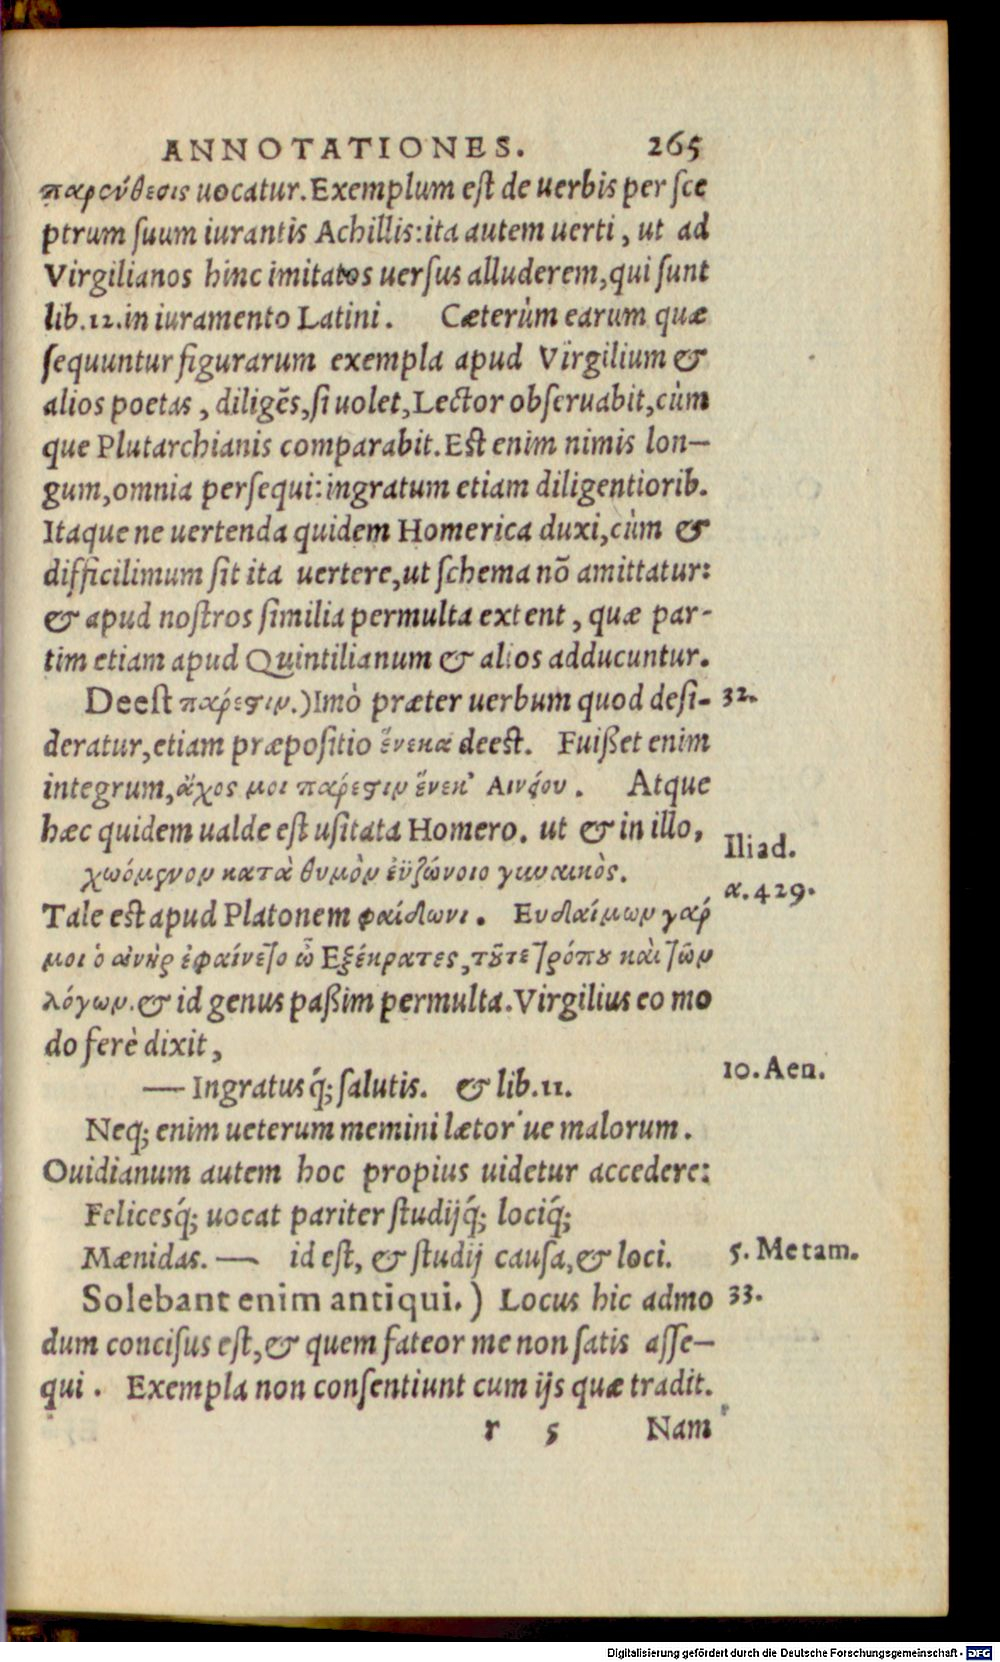 ANNOTATIONES. 265
παρένθεσις uocatur. Exemplum est de uerbis per sce
ptrum suum iurantis Achillis: ita autem uerti, ut ad
Virgilianos hinc imitatos uersus alluderem, qui sunt
lib. 12. in iuramento Latini. Cæterùm earum quæ
sequuntur figurarum exempla apud Virgilium &
alios poetas, diligẽs, si uolet, Lector obseruabit, cùm
que Plutarchianis comparabit. Est enim nimis lon–
gum, omnia persequi: ingratum etiam diligentiorib.
Itaque ne uertenda quidem Homerica duxi, cùm &
difficilimum sit ita uertere, ut schema nõ amittatur:
& apud nostros similia permulta extent, quæ par-
tim etiam apud Quintilianum & alios adducuntur.
Deest πάρεστιν.) Imò præter uerbum quod desi- 32.
deratur, etiam præpositio ἕνεκα deest. Fuißet enim
integrum, ἄχος μοι πάρεστιν ἕνεκ' Αινείου. Atque
hæc quidem ualde est usitata Homero. ut & in illo,
Iliad.
χωόμενον κατὰ θυμὸν ἐϋζώνοιο γυναικὸς.
α. 429.
Tale est apud Platonem φαίδωνι. Ευδαίμων γάρ
μοι ὁ ἀνὴρ ἐφαίνετο ὦ Εξέκρατες, τοῦ τε τρόπου καὶ τῶν
λόγων. & id genus paßim permulta. Virgilius eo mo
do ferè dixit,
10. Aen.
— Ingratusq́; salutis. & lib. 11.
Neq; enim ueterum memini lætor' ue malorum.
Ouidianum autem hoc propius uidetur accedere:
Felicesq́; uocat pariter studijq́; lociq́;
Mænidas. — id est, & studij causa, & loci. 5. Metam.
Solebant enim antiqui.) Locus hic admo 33.
dum concisus est, & quem fateor me non satis asse–
qui. Exempla non consentiunt cum ijs quæ tradit.
r 5 Nam
Digitalisierung gefördert durch die Deutsche Forschungsgemeinschaft - DFG